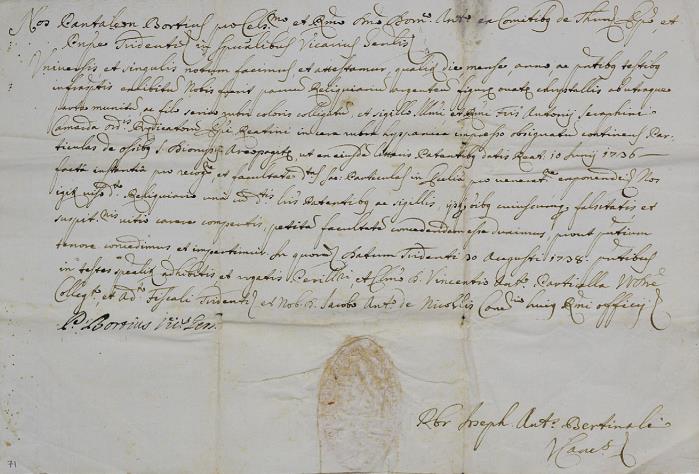 Nos Pantaleon Bortius pro Cels.mo et Rmo Dno Dom.co Ant.o ex Comitibq de Thunn Epo, et
Pnpe Tridenti in spiritualibus Vicarius Gen̄lis
Universis et singulis notum facimus et attestamur, qualiter die mense, anno ac pntibq testibq
infraptis exhibitum Nobis fuit parvum Reliquiarium argenteum figuræ ovatæ chrystallis ab utraque
parte munitum ac filo serico rubri coloris colligatum, et sigillo Illmi et Rmi Fris Antonij Seraphini
Camarda Ord.s Prædicatorum Epi Reatini in cera rubra hyspanica impresso obsignatum continens Par-
ticulas de ossibq S. Dionysij Areopagitæ, ut en ejusdem litteris Patentibq datis Reat. 10 Junij 1736 —
facta instantia pro et facultate Sa: Particulas in pro venerat.ne exponendi Nos
igitr viso d.o Reliquiario una cum d.tis Lris Patentibq ac sigillis, omni cuiuscumq falsitatis et
suspit.nis vitio carere compertis, petitam facultatem concedendam esse duximus, prout pntium
tenore concedimus et impertimur. In quorum Datum Tridenti 30 Augusti 1738. pntibus
in testes adhibitis et rogatis Perilli et Clmo D. Vincentio Ant.o Particella Nobre
Colleg.to et Ad.to Fiscali Tridenti et Nob. D. Jacobo Ant.o de Nicollis Canc.rio huiq Rmi officij
P. Bortius Vic.s Gen.
Pbr Joseph Ant.s Bertinalli
Canc.s
71